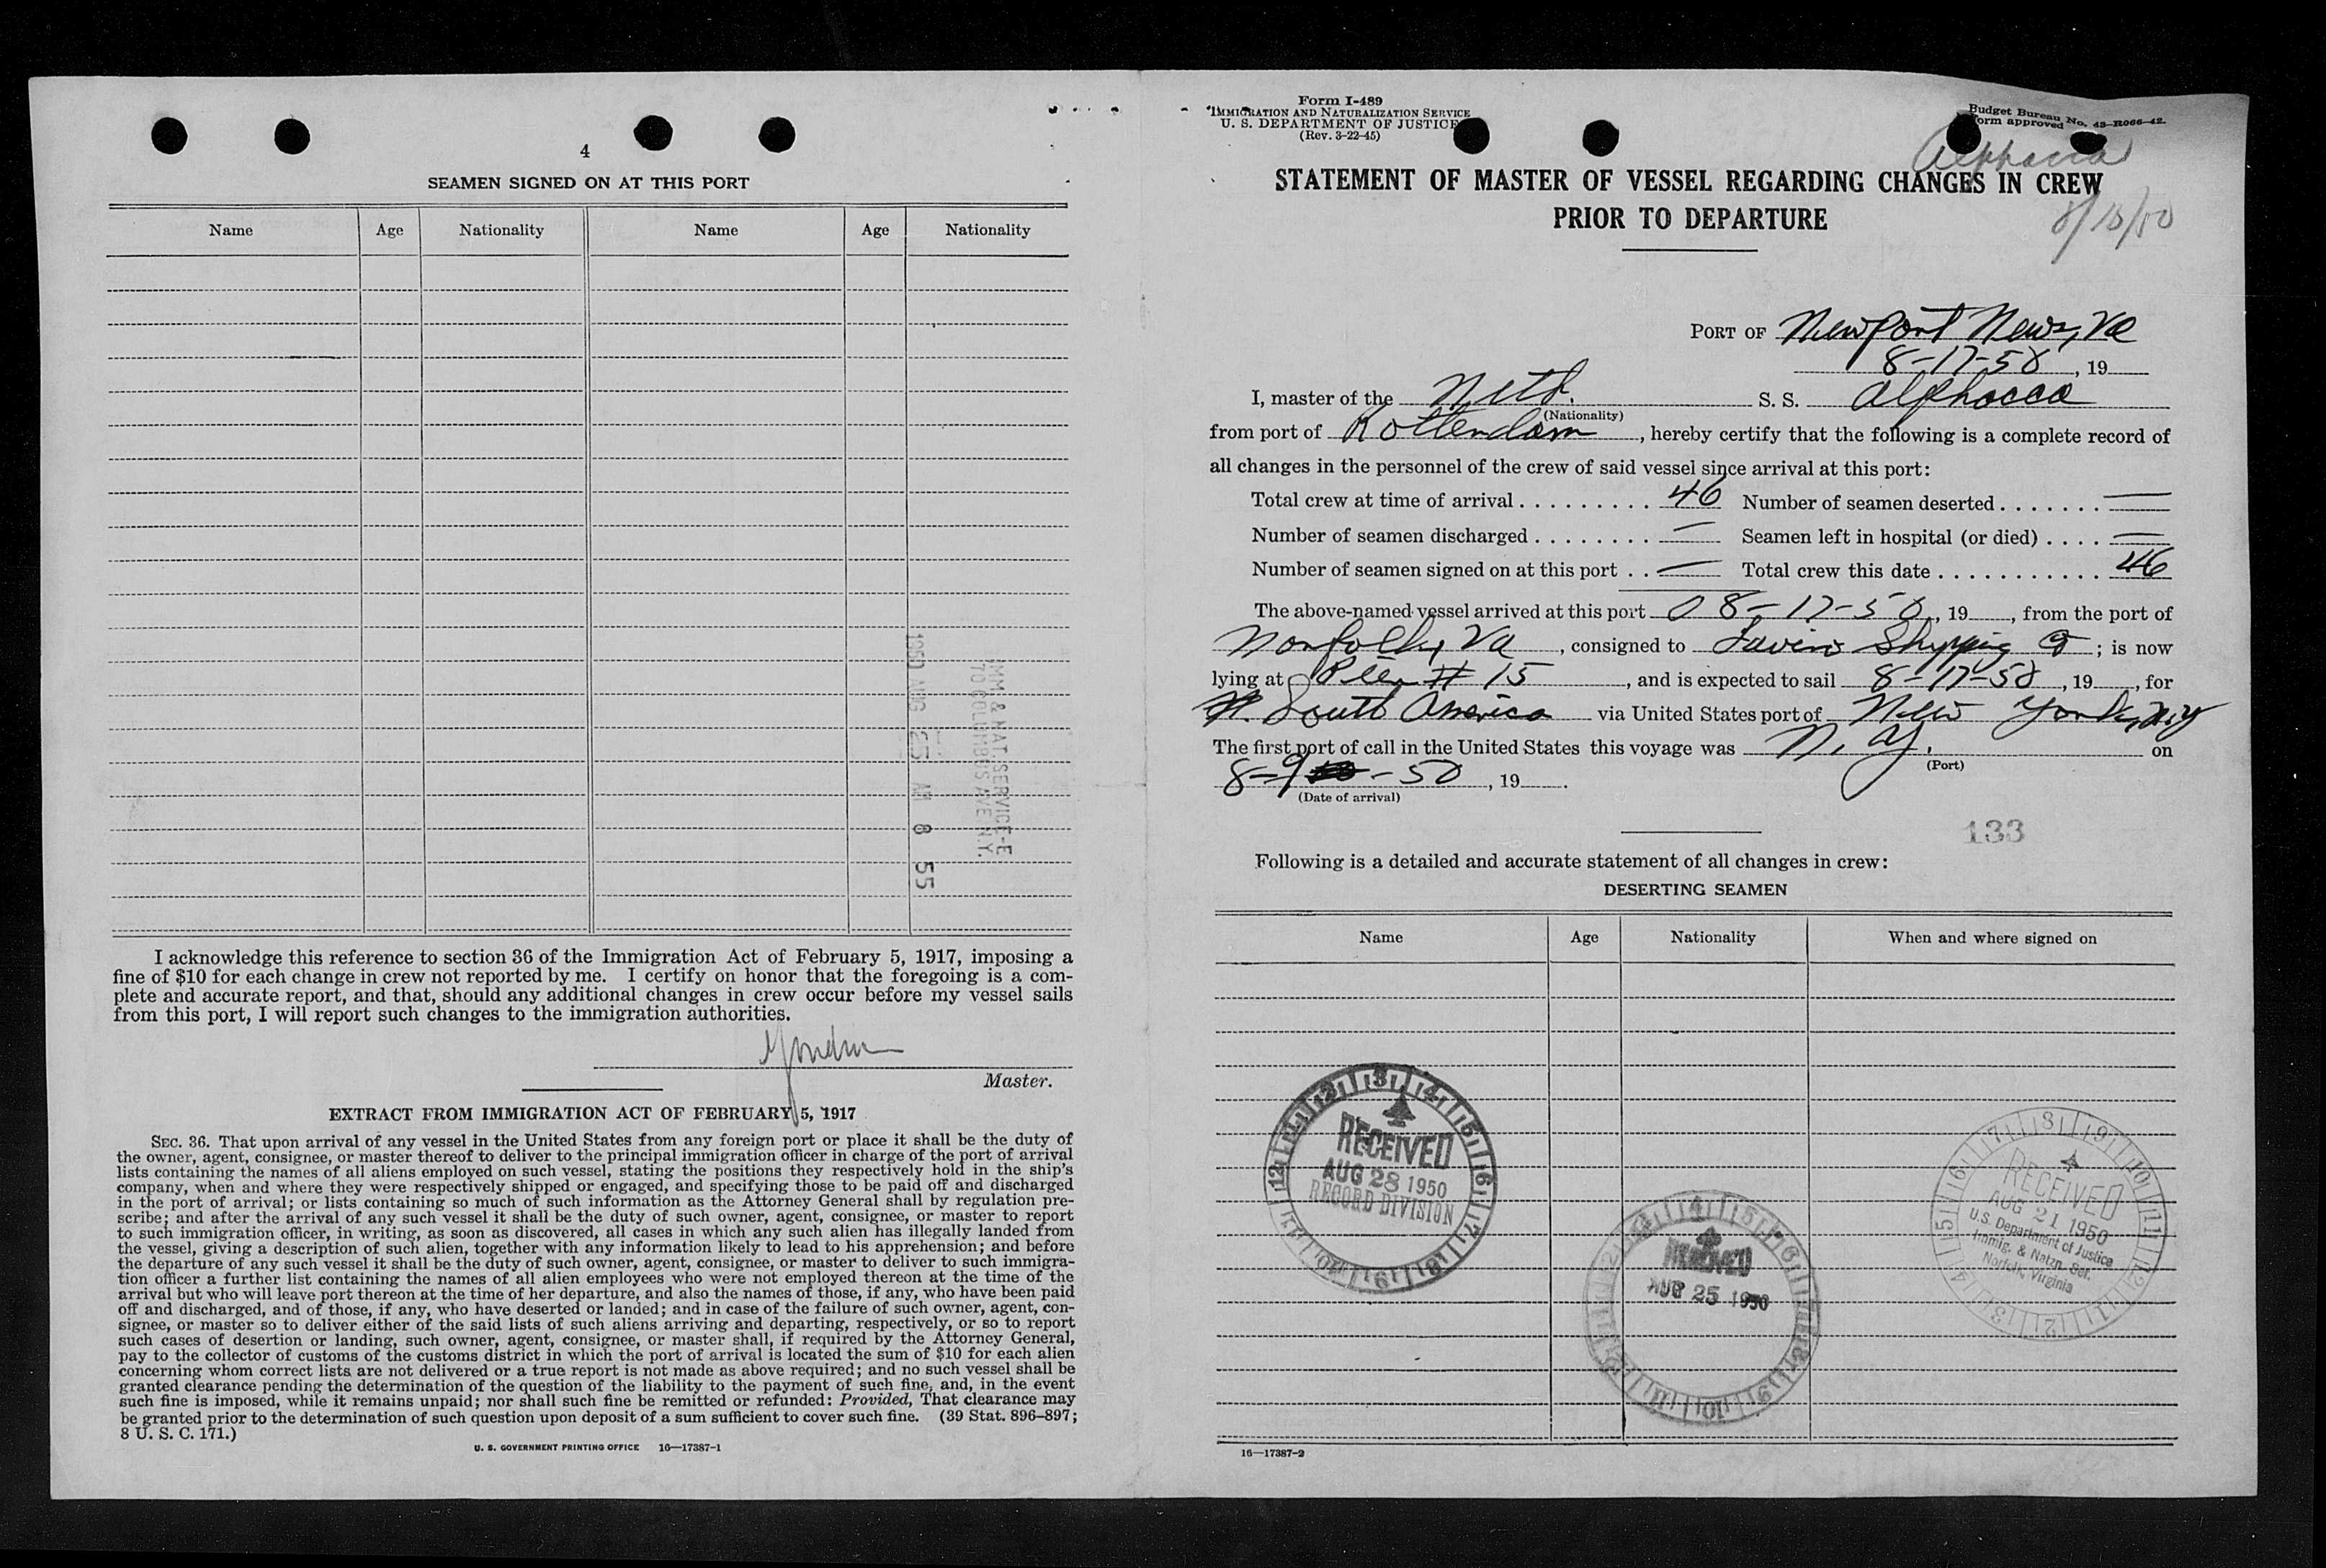 4
SEAMEN SIGNED ON AT THIS PORT
Name Age Nationality Name Age Nationality
IMM & NAT. SERVICE-E
70 COLUMBUS AVE N.Y.
1950 AUG 25 AM 8 55
I acknowledge this reference to section 36 of the Immigration Act of February 5, 1917, imposing a
fine of $10 for each change in crew not reported by me. I certify on honor that the foregoing is a com-
plete and accurate report, and that, should any additional changes in crew occur before my vessel sails
from this port, I will report such changes to the immigration authorities.
Master.
EXTRACT FROM IMMIGRATION ACT OF FEBRUARY 5, 1917
SEC. 36. That upon arrival of any vessel in the United States from any foreign port or place it shall be the duty of
the owner, agent, consignee, or master thereof to deliver to the principal immigration officer in charge of the port of arrival
lists containing the names of all aliens employed on such vessel, stating the positions they respectively hold in the ship's
company, when and where they were respectively shipped or engaged, and specifying those to be paid off and discharged
in the port of arrival; or lists containing so much of such information as the Attorney General shall by regulation pre-
scribe; and after the arrival of any such vessel it shall be the duty of such owner, agent, consignee, or master to report
to such immigration officer, in writing, as soon as discovered, all cases in which any such alien has illegally landed from
the vessel, giving a description of such alien, together with any information likely to lead to his apprehension; and before
the departure of any such vessel it shall be the duty of such owner, agent, consignee, or master to deliver to such immigra-
tion officer a further list containing the names of all alien employees who were not employed thereon at the time of the
arrival but who will leave port thereon at the time of her departure, and also the names of those, if any, who have been paid
off and discharged, and of those, if any, who have deserted or landed; and in case of the failure of such owner, agent, con-
signee, or master so to deliver either of the said lists of such aliens arriving and departing, respectively, or so to report
such cases of desertion or landing, such owner, agent, consignee, or master shall, if required by the Attorney General,
pay to the collector of customs of the customs district in which the port of arrival is located the sum of $10 for each alien
concerning whom correct lists are not delivered or a true report is not made as above required; and no such vessel shall be
granted clearance pending the determination of the question of the liability to the payment of such fine, and, in the event
such fine is imposed, while it remains unpaid; nor shall such fine be remitted or refunded: Provided, That clearance may
be granted prior to the determination of such question upon deposit of a sum sufficient to cover such fine. (39 Stat. 896-897;
8 U. S. C. 171.)
U. S. GOVERNMENT PRINTING OFFICE 16—17387-1
Form I-489
IMMIGRATION AND NATURALIZATION SERVICE
U. S. DEPARTMENT OF JUSTICE
(Rev. 3-22-45)
Budget Bureau No. 43-R066-42.
Form approved
STATEMENT OF MASTER OF VESSEL REGARDING CHANGES IN CREW
PRIOR TO DEPARTURE
PORT OF Newport News, Va
8-17-50, 19
I, master of the Neth. S. S. Alphacca
(Nationality)
from port of Rotterdam, hereby certify that the following is a complete record of
all changes in the personnel of the crew of said vessel since arrival at this port:
Total crew at time of arrival 46 Number of seamen deserted —
Number of seamen discharged — Seamen left in hospital (or died) —
Number of seamen signed on at this port — Total crew this date 46
The above-named vessel arrived at this port 8-17-50, 19, from the port of
Norfolk, Va, consigned to Shipping Co; is now
lying at Pier # 15, and is expected to sail 8-17-50, 19, for
South America via United States port of New York, N.Y
The first port of call in the United States this voyage was N.Y. on
(Port)
8-9-50, 19.
(Date of arrival)
133
Following is a detailed and accurate statement of all changes in crew:
DESERTING SEAMEN
Name Age Nationality When and where signed on
RECEIVED
AUG 28 1950
RECORD DIVISION
RECEIVED
AUG 25 1950
RECEIVED
AUG 21 1950
U.S. Department of Justice
Immig. & Natzn. Ser.
Norfolk, Virginia
16—17387-2